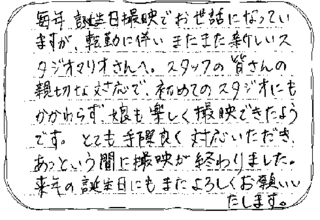 毎年誕生日撮影でお世話になってい
ますが、転勤に伴いまたまた新しいス
タジオマリオさんへ。スタッフの皆さんの
親切な対応で、初めてのスタジオにも
かかわらず、娘も楽しく撮影できたよう
です。とても手際良く対応いただき、
あっという間に撮影が終わりました。
来年の誕生日にもまたよろしくお願いい
たします。